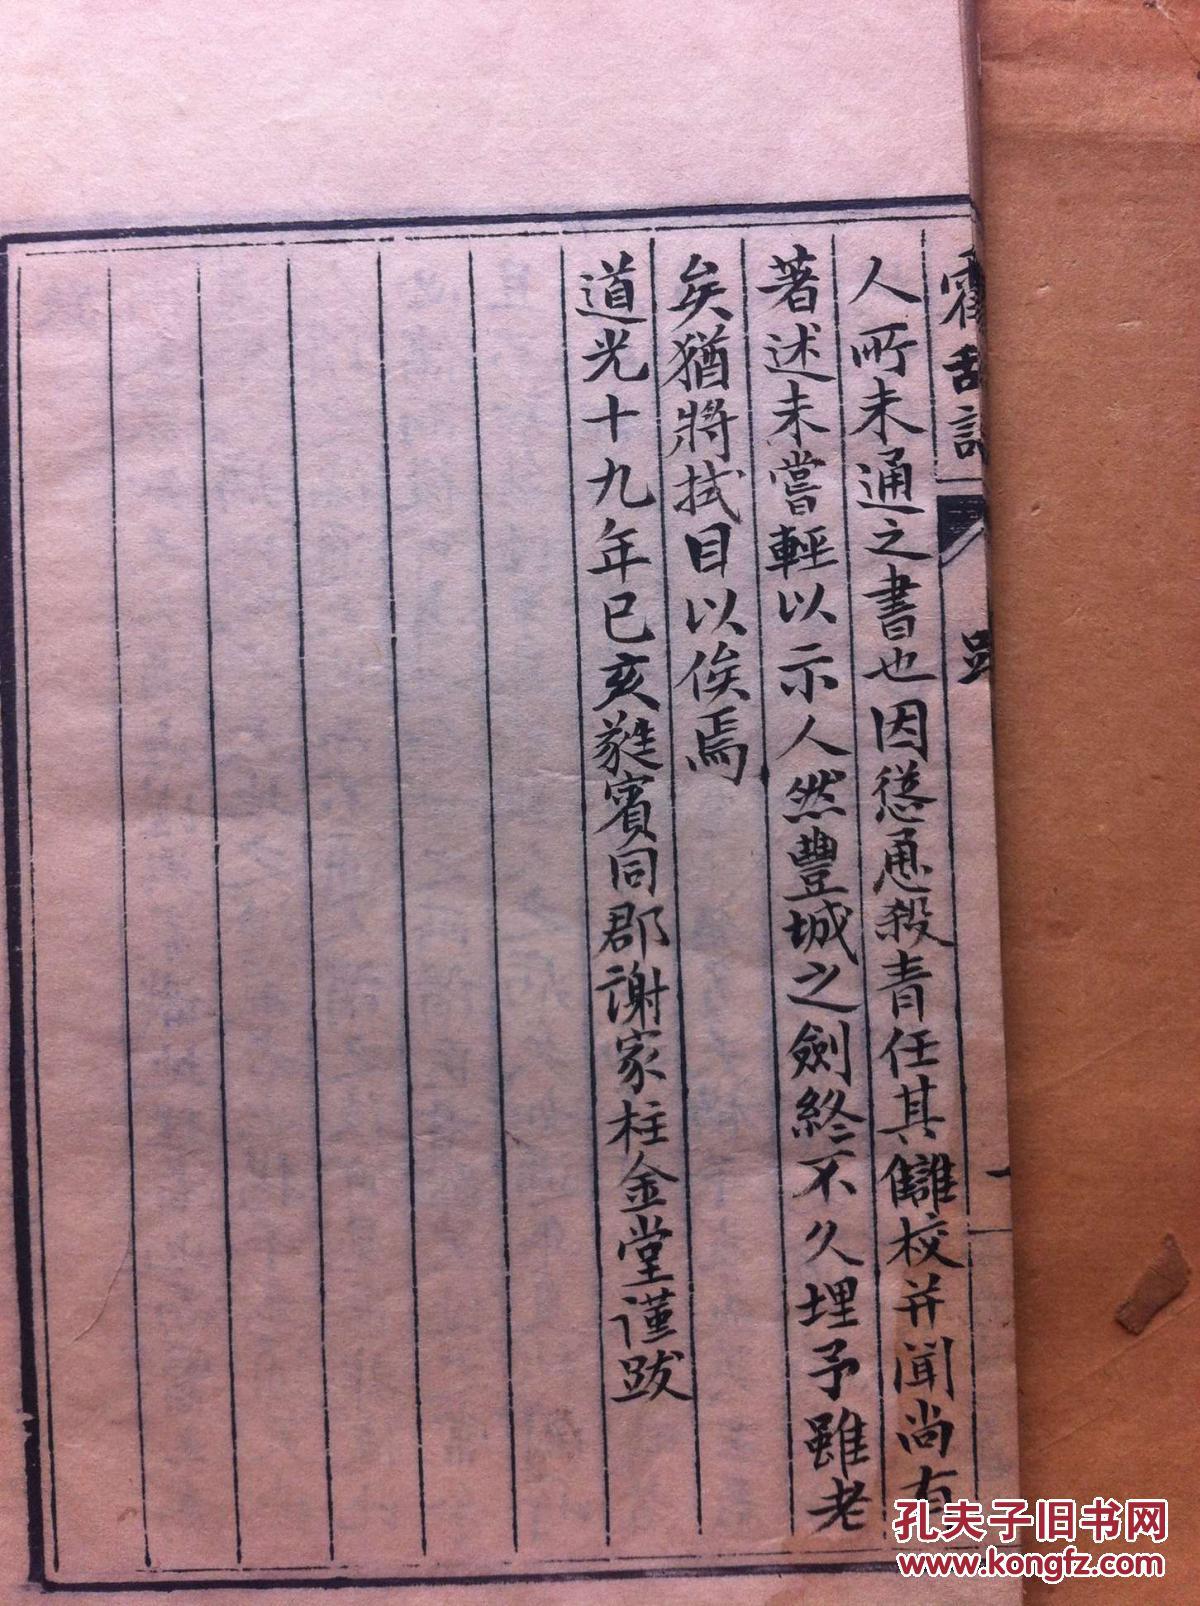 霍亂論
跋
一
人所未通之書也因慫恿殺青任其讎校并聞尚有
著述未嘗輕以示人然豐城之劍終不久埋予雖老
矣猶將拭目以俟焉
道光十九年已亥蕤賓同郡謝家柱金堂謹跋
孔夫子旧书网
www.kongfz.com